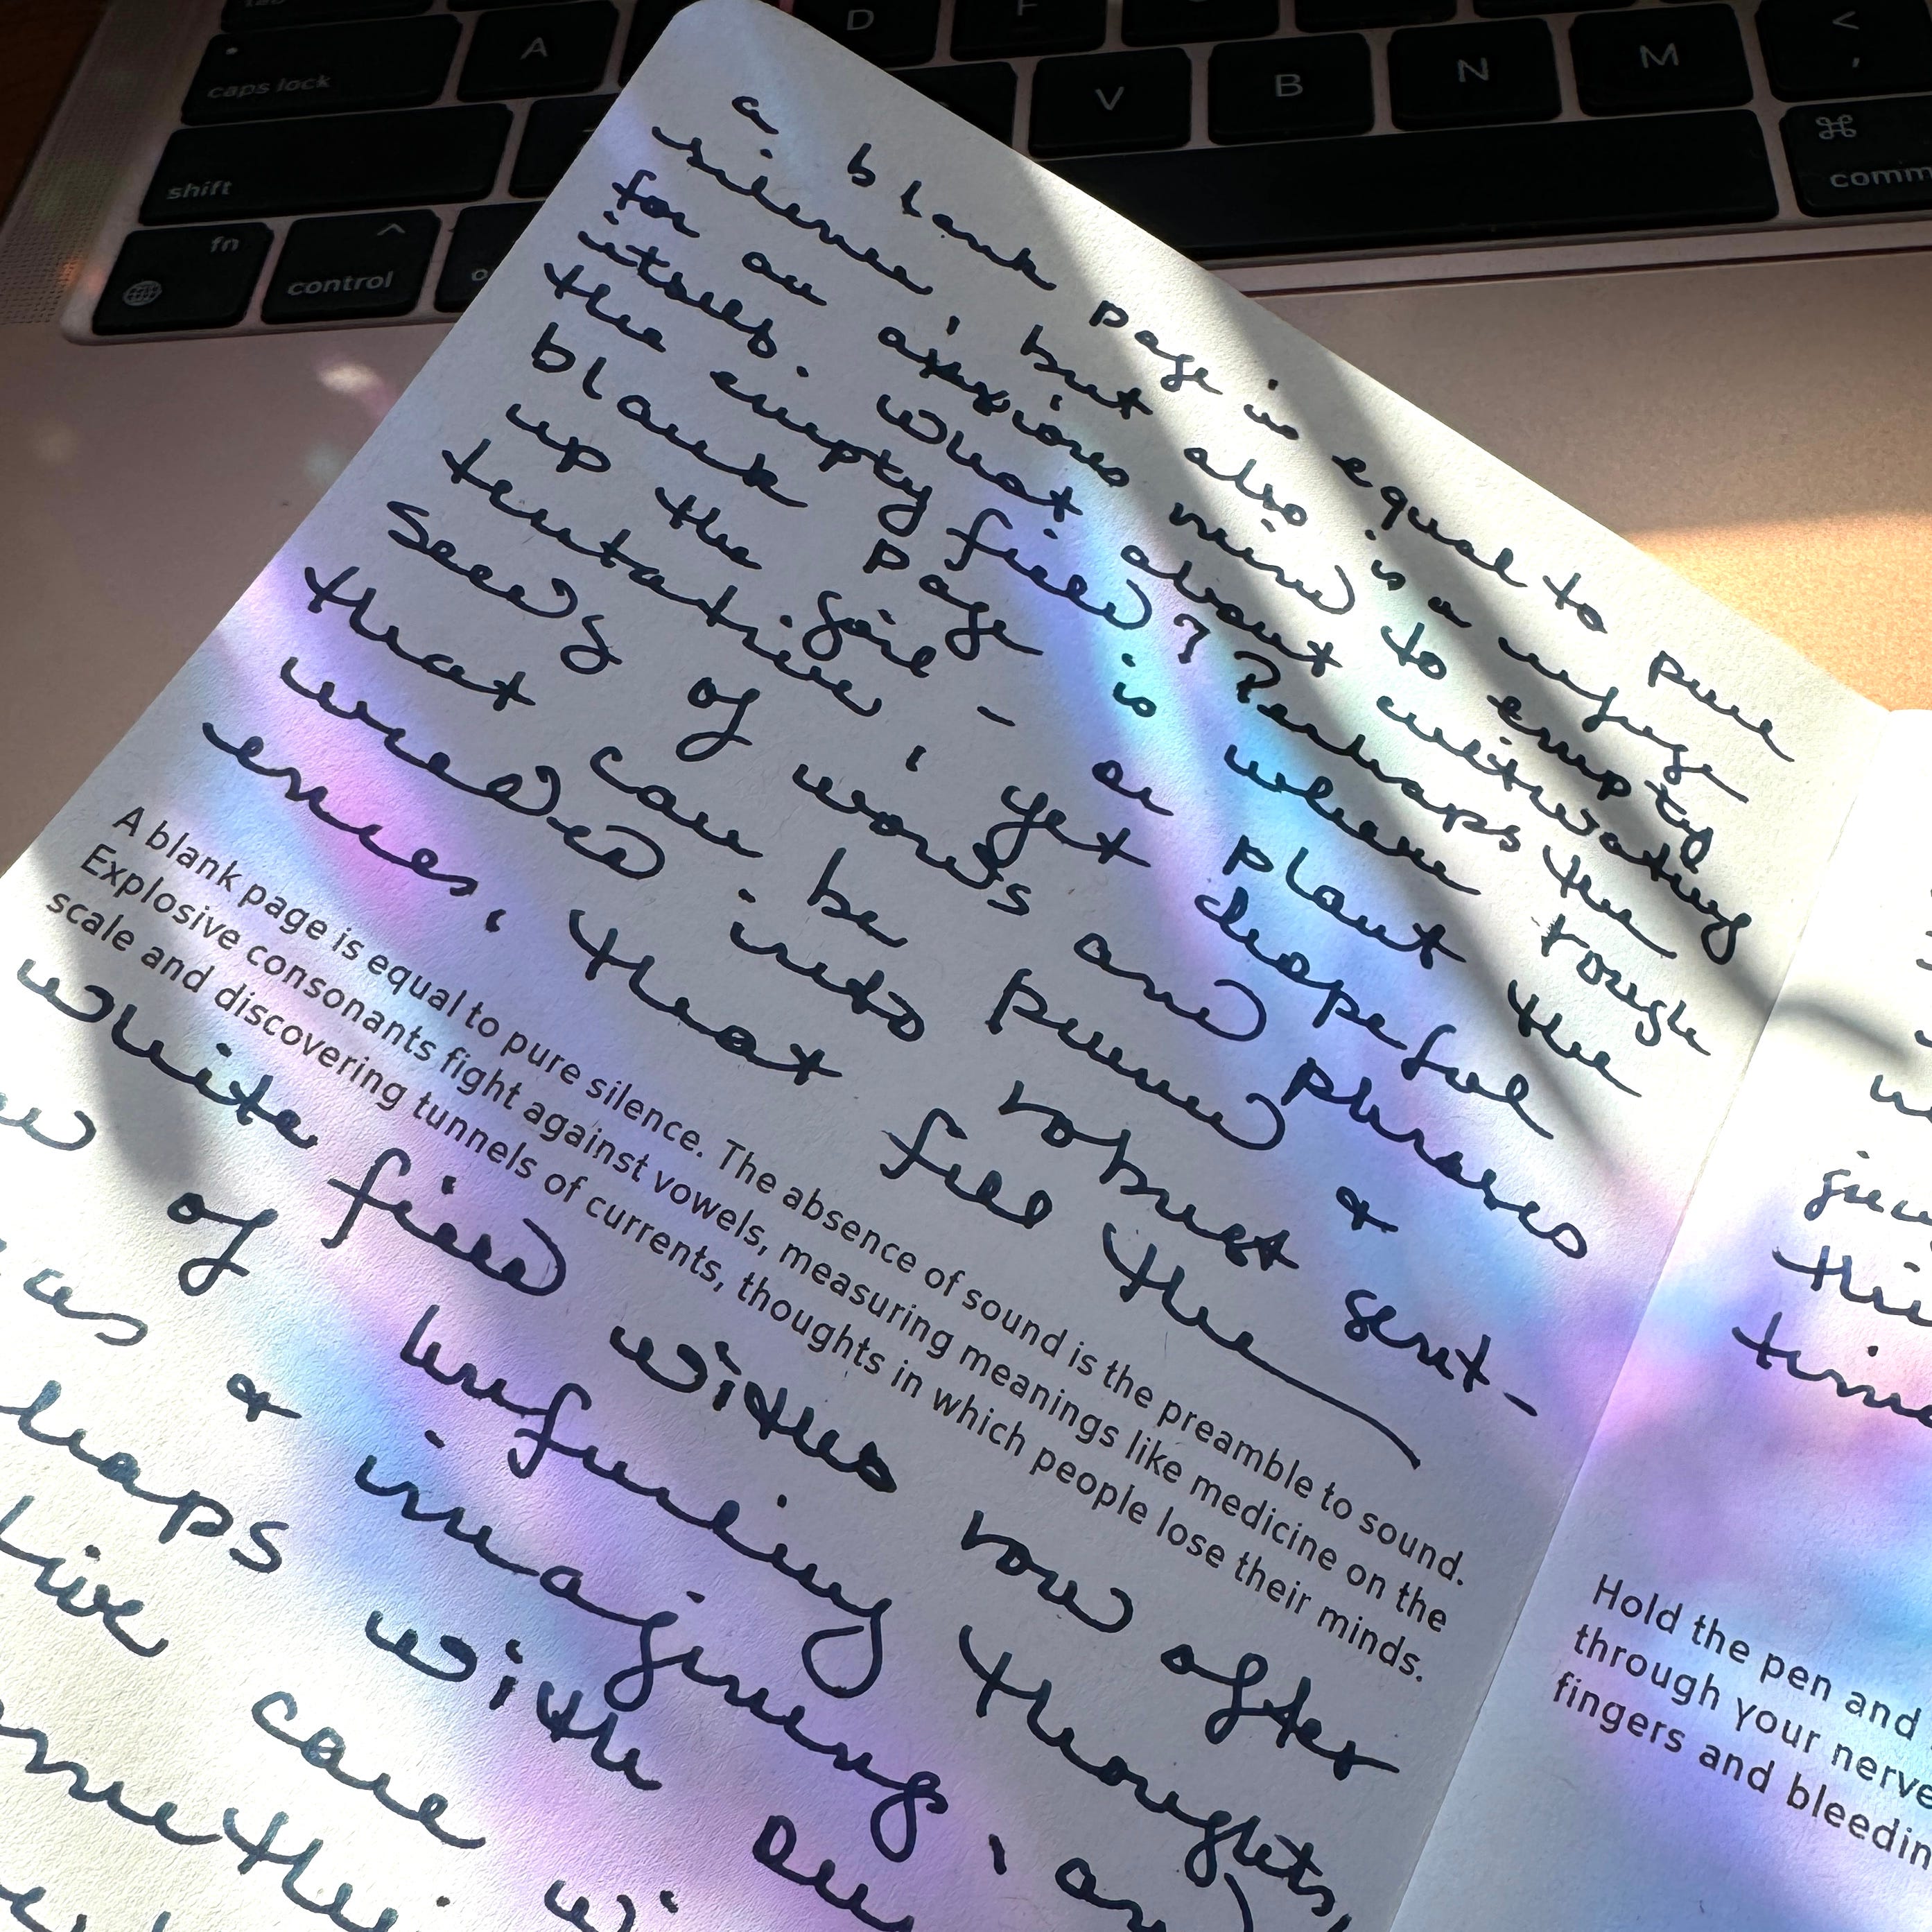 tab
caps lock
A
D
F
V
B
N
M
<
,
shift
fn
^
control
⌘
a blank page is equal to pure
silence, but also is a refuge
for an anxious mind to empty
itself. what about cultivating
the empty field? Perhaps the
blank page is where rough
up the soil – an plant the
tentative, yet hopeful
seeds of words and phrases
that can be pruned &
weeded into robust sent-
ences, that fill the
A blank page is equal to pure silence. The absence of sound is the preamble to sound.
Explosive consonants fight against vowels, measuring meanings like medicine on the
scale and discovering tunnels of currents, thoughts in which people lose their minds.
white field with row after
of unfurling thoughts,
& imagining,
with
care
Hold the pen and
through your nerve
fingers and bleedin